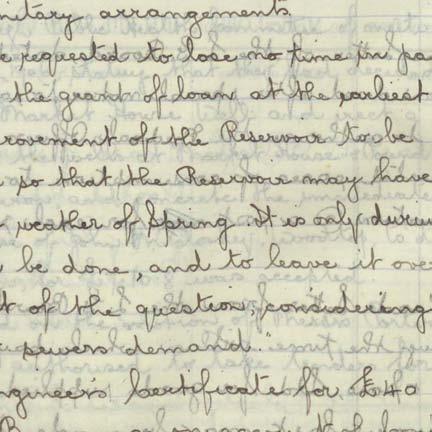 nitary arrangements
e requested to lose no time in pa
the grant of loan at the earliest
rovement of the Reservoir to be
so that the Reservoir may have
weather of Spring. It is only durin
be done, and to leave it ove
t of the question, considering
sewers demand."
ngineer's Certificate for £40